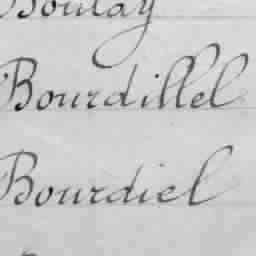 Boulay
Bourdillel
Bourdiel